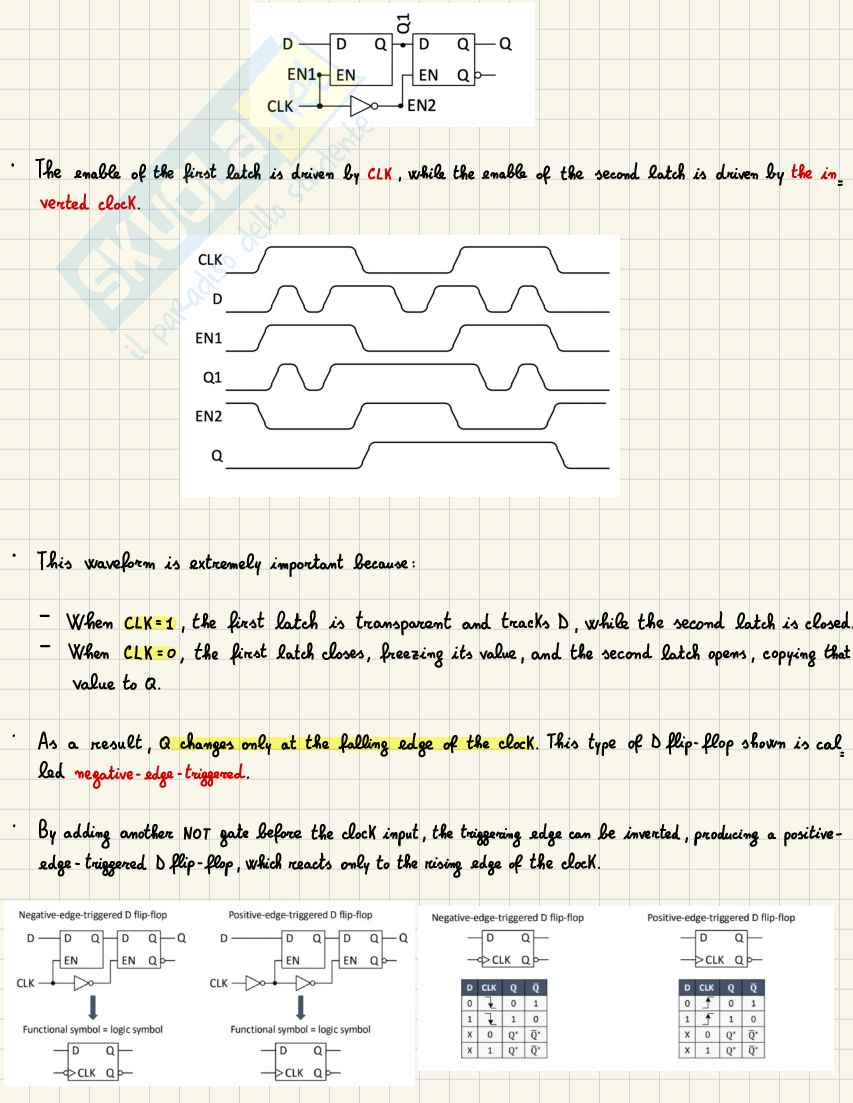 Q1
D D Q D Q Q
EN1 EN EN Q
CLK EN2
SKUOLA.net
il paradiso dello studente
· The enable of the first latch is driven by CLK, while the enable of the second latch is driven by the in=
verted clock.
CLK
D
EN1
Q1
EN2
Q
· This waveform is extremely important because:
- When CLK=1, the first latch is transparent and tracks D, while the second latch is closed.
- When CLK=0, the first latch closes, freezing its value, and the second latch opens, copying that
value to Q.
· As a result, Q changes only at the falling edge of the clock. This type of D flip-flop shown is cal=
led negative-edge-triggered.
· By adding another NOT gate before the clock input, the triggering edge can be inverted, producing a positive-
edge-triggered D flip-flop, which reacts only to the rising edge of the clock.
Negative-edge-triggered D flip-flop
D D Q D Q Q
EN EN Q
CLK
Functional symbol = logic symbol
D Q
CLK Q
Positive-edge-triggered D flip-flop
D D Q D Q Q
EN EN Q
CLK
Functional symbol = logic symbol
D Q
CLK Q
Negative-edge-triggered D flip-flop
D Q
CLK Q
D CLK Q Q̅
0 0 1
1 1 0
X 0 Q* Q̅*
X 1 Q* Q̅*
Positive-edge-triggered D flip-flop
D Q
CLK Q
D CLK Q Q̅
0 0 1
1 1 0
X 0 Q* Q̅*
X 1 Q* Q̅*